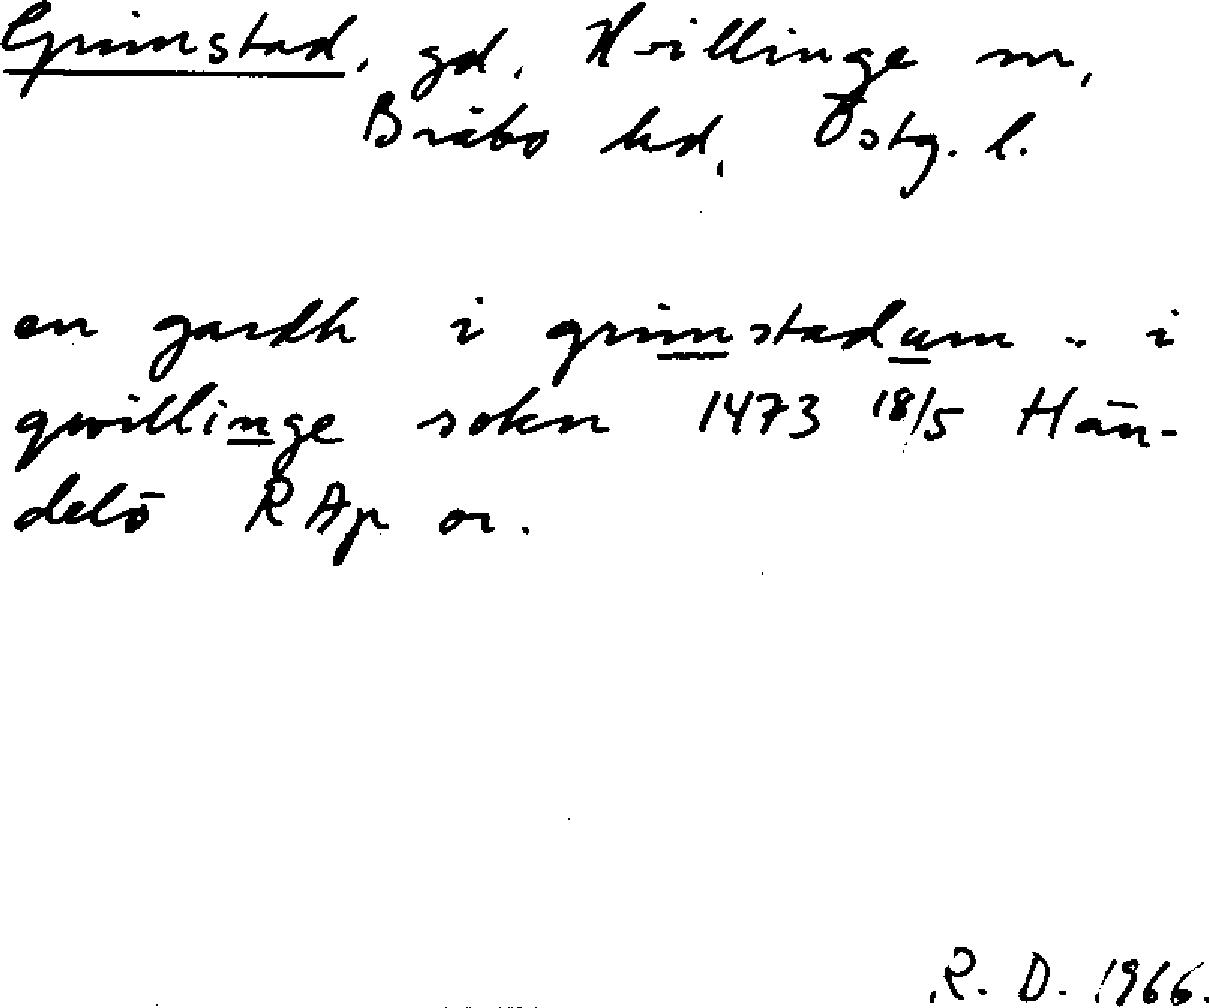 Grimstad, gd, Kvillinge sn,
Bråbo hd, Östg. l.
en gardh i grimstadum .. i
qwillinge sokn 1473 18/5 Hän-
delö RAp or.
R. D. 1966.